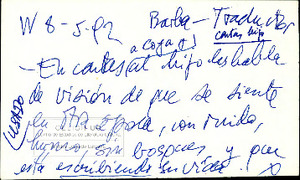 W 8-5-92 Barba - Traductor
a Goya cartas hijo
- En cartas al hijo les habla
de visión de que se siente
en otra época, con ruido,
humo sin bosques y que
está escribiendo su vida.
USADO